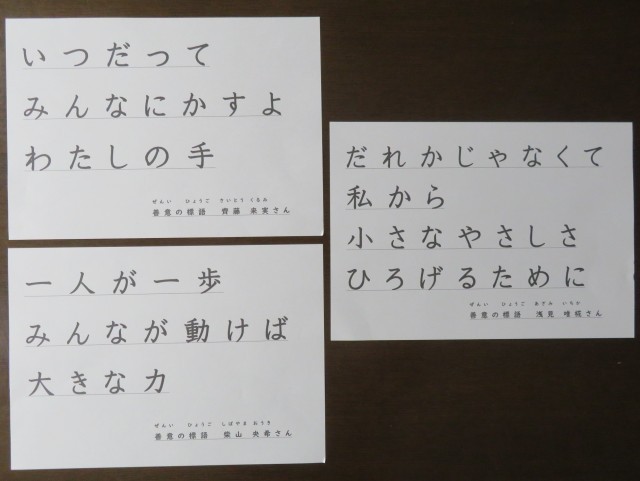 いつだって
みんなにかすよ
わたしの手
ぜんい ひょうご さいとう くるみ
善意の標語 齊藤 来実さん
一人が一歩
みんなが動けば
大きな力
ぜんい ひょうご しばやま おうき
善意の標語 柴山 央希さん
だれかじゃなくて
私から
小さなやさしさ
ひろげるために
ぜんい ひょうご あざみ いちか
善意の標語 浅見 唯椛さん